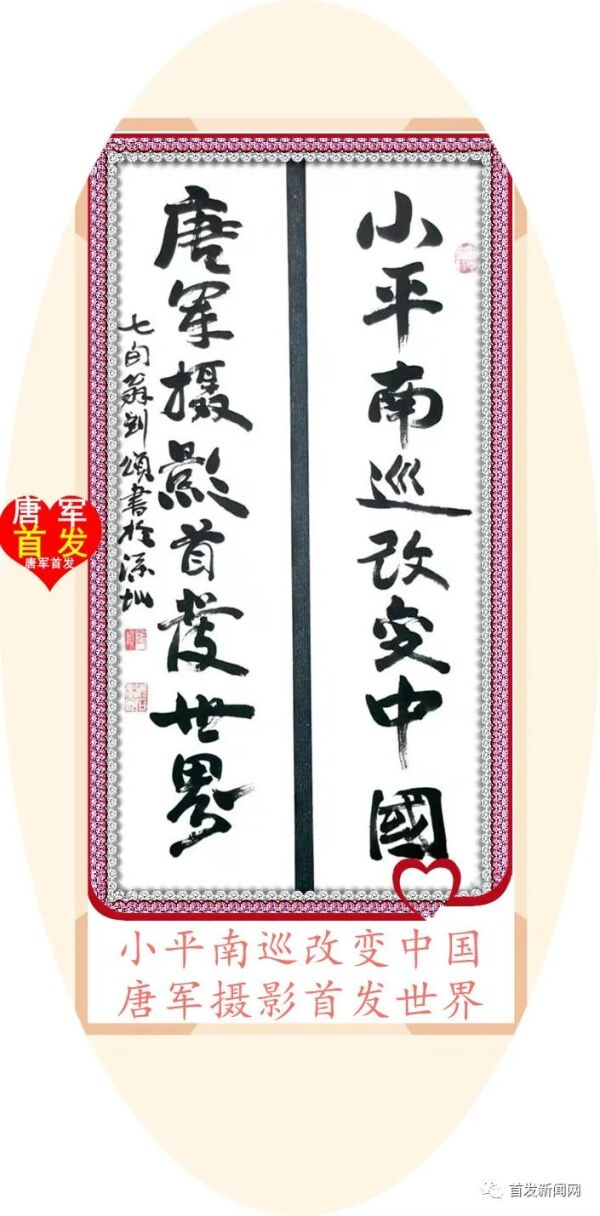 小平南巡改变中國
唐军摄影首发世界
七旬翁刘颂书於深圳
唐军
首发
唐军首发
小平南巡改变中国
唐军摄影首发世界
首发新闻网